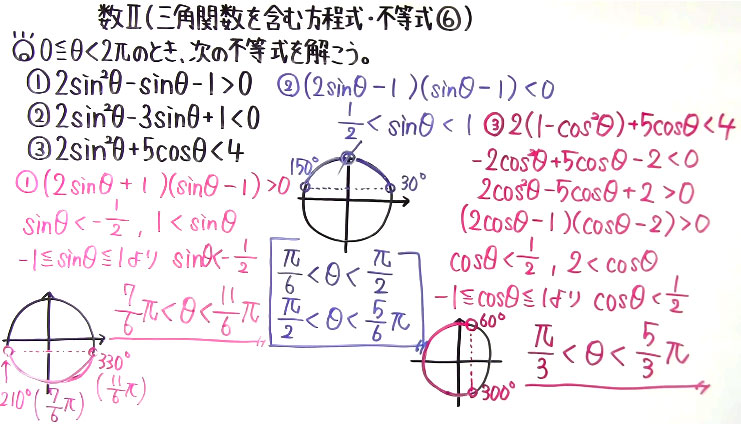 数Ⅱ(三角関数を含む方程式・不等式⑥)
0≦θ<2πのとき、次の不等式を解こう。
①2sin²θ-sinθ-1>0
②2sin²θ-3sinθ+1<0
③2sin²θ+5cosθ<4
①(2sinθ+1)(sinθ-1)>0
sinθ<-1/2, 1<sinθ
-1≦sinθ≦1より sinθ<-1/2
7/6π<θ<11/6π
330°
(11/6π)
210°(7/6π)
②(2sinθ-1)(sinθ-1)<0
1/2<sinθ<1
150°
30°
π/6<θ<π/2
π/2<θ<5/6π
③2(1-cos²θ)+5cosθ<4
-2cos²θ+5cosθ-2<0
2cos²θ-5cosθ+2>0
(2cosθ-1)(cosθ-2)>0
cosθ<1/2, 2<cosθ
-1≦cosθ≦1より cosθ<1/2
60°
300°
π/3<θ<5/3π